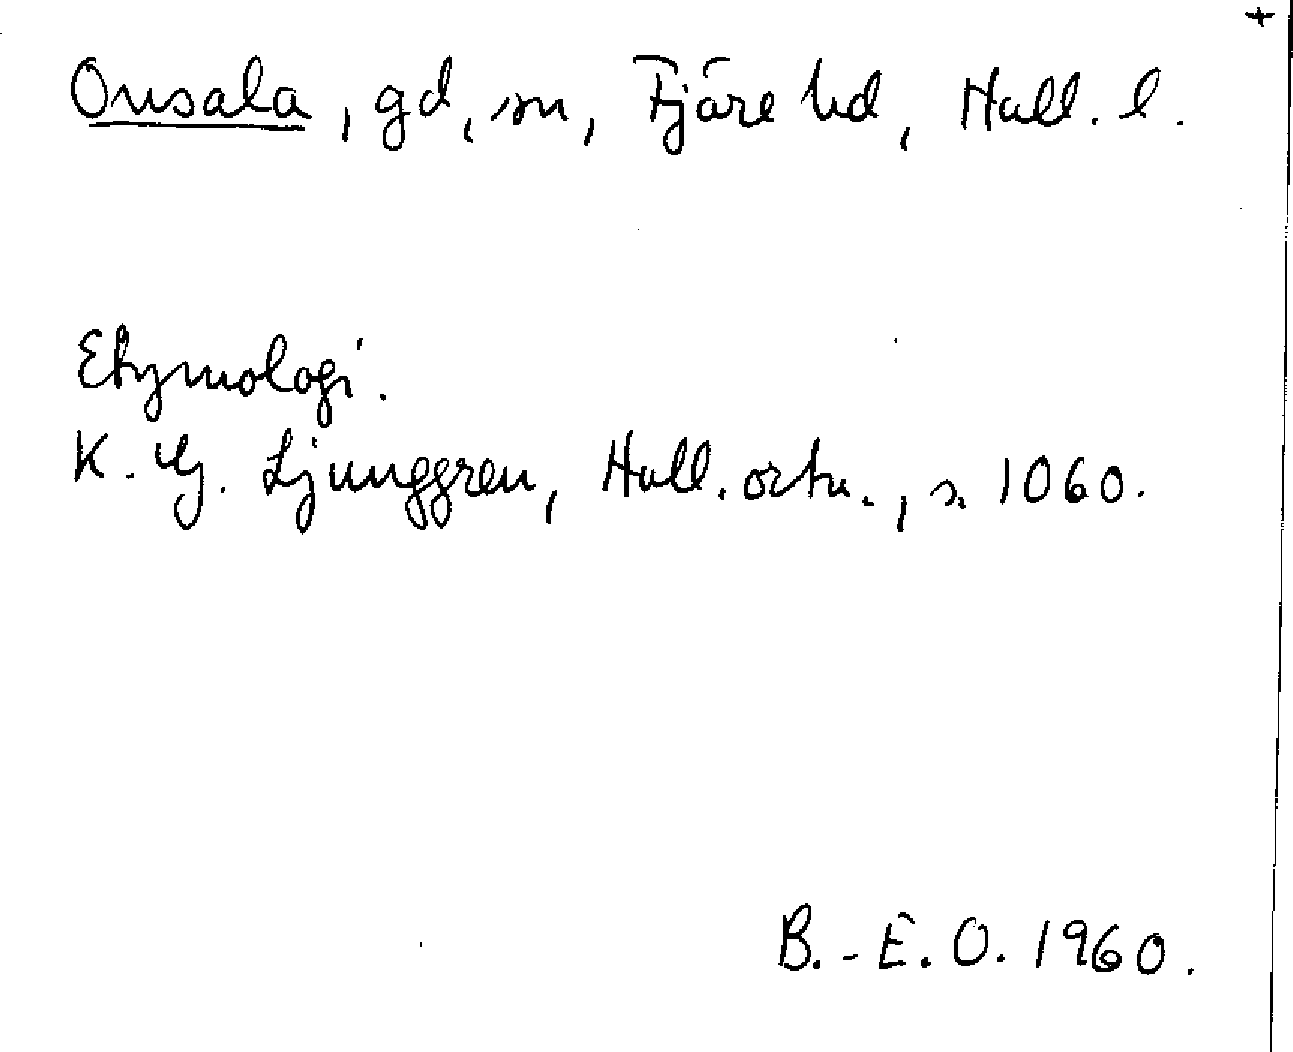 +
Onsala, gd, sn, Fjäre hd, Hall. l.
Etymologi.
K. G. Ljunggren, Hall. ortn., s. 1060.
B.-E. O. 1960.